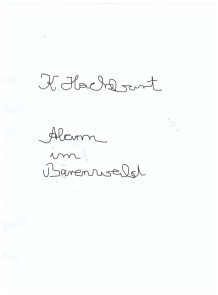 K. Hachbart
Alarm
im
Bärenwald